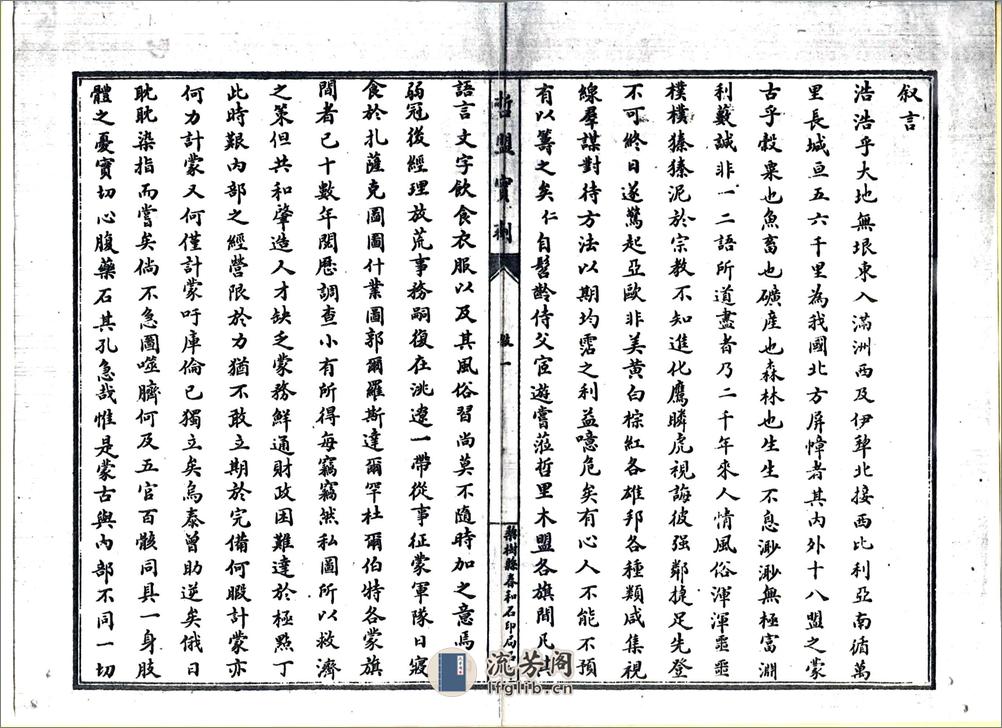 叙言
浩浩乎大地無垠東入滿洲西及伊犂北接西比利亞南循萬
里長城亘五六千里為我國北方屏幛者其內外十八盟之蒙
古乎穀粟也魚畜也礦産也森林也生生不息渺渺無極富淵
利藪誠非一二語所道盡者乃二千年來人情風俗渾渾噩噩
樸樸獉獉泥於宗教不知進化鷹瞵虎視誨彼强鄰捷足先登
不可終日遂驚起亞歐非美黃白棕紅各雄邦各種類咸集視
線羣謀對待方法以期均霑之利益噫危矣有心人不能不預
有以籌之矣仁自髫齡侍父宦遊嘗蒞哲里木盟各旗間凡其
哲盟實剂
敍一
棃樹縣春和石印局
語言文字飲食衣服以及其風俗習尚莫不隨時加之意焉
弱冠後經理放荒事務嗣復在洮遼一帶從事征蒙軍隊日寢
食於扎薩克圖圖什業圖郭爾羅斯達爾罕杜爾伯特各蒙旗
間者已十數年閱歷調查小有所得每竊竊然私圖所以救濟
之策但共和肇造人才缺乏蒙務鮮通財政困難達於極點丁
此時艱內部之經營限於力猶不敢立期於完備何暇計蒙亦
何力計蒙又何僅計蒙吁庫倫已獨立矣烏泰曾助逆矣俄日
眈眈染指而嘗矣倘不急圖噬臍何及五官百骸同具一身肢
體之憂實切心腹藥石其孔急哉惟是蒙古與內部不同一切
流芳閣
lfglib.cn